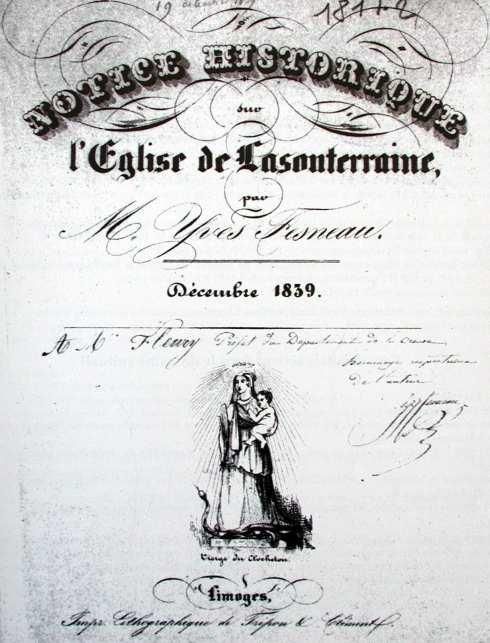 19
1811.2
NOTICE HISTORIQUE
sur
l'Eglise de Lasouterraine,
par
M. Yves Fesneau.
Décembre 1839.
A Mr Fleury Préfet du Département de la Creuse
hommage respectueux
de l'auteur
Vierge du Clocheton.
Limoges,
Impr. Lithographique de Tripon & Clément.